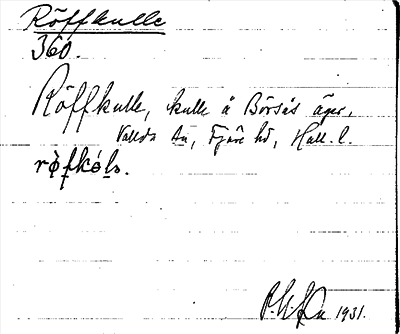 Röffkulle
360.
Röffkulle, kulle å Börsås ägor,
Vallda sn, Fjäre hd, Hall. l.
1931.